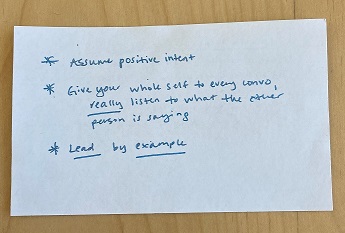 * Assume positive intent
* Give your whole self to every convo,
really listen to what the other
person is saying
* Lead by example